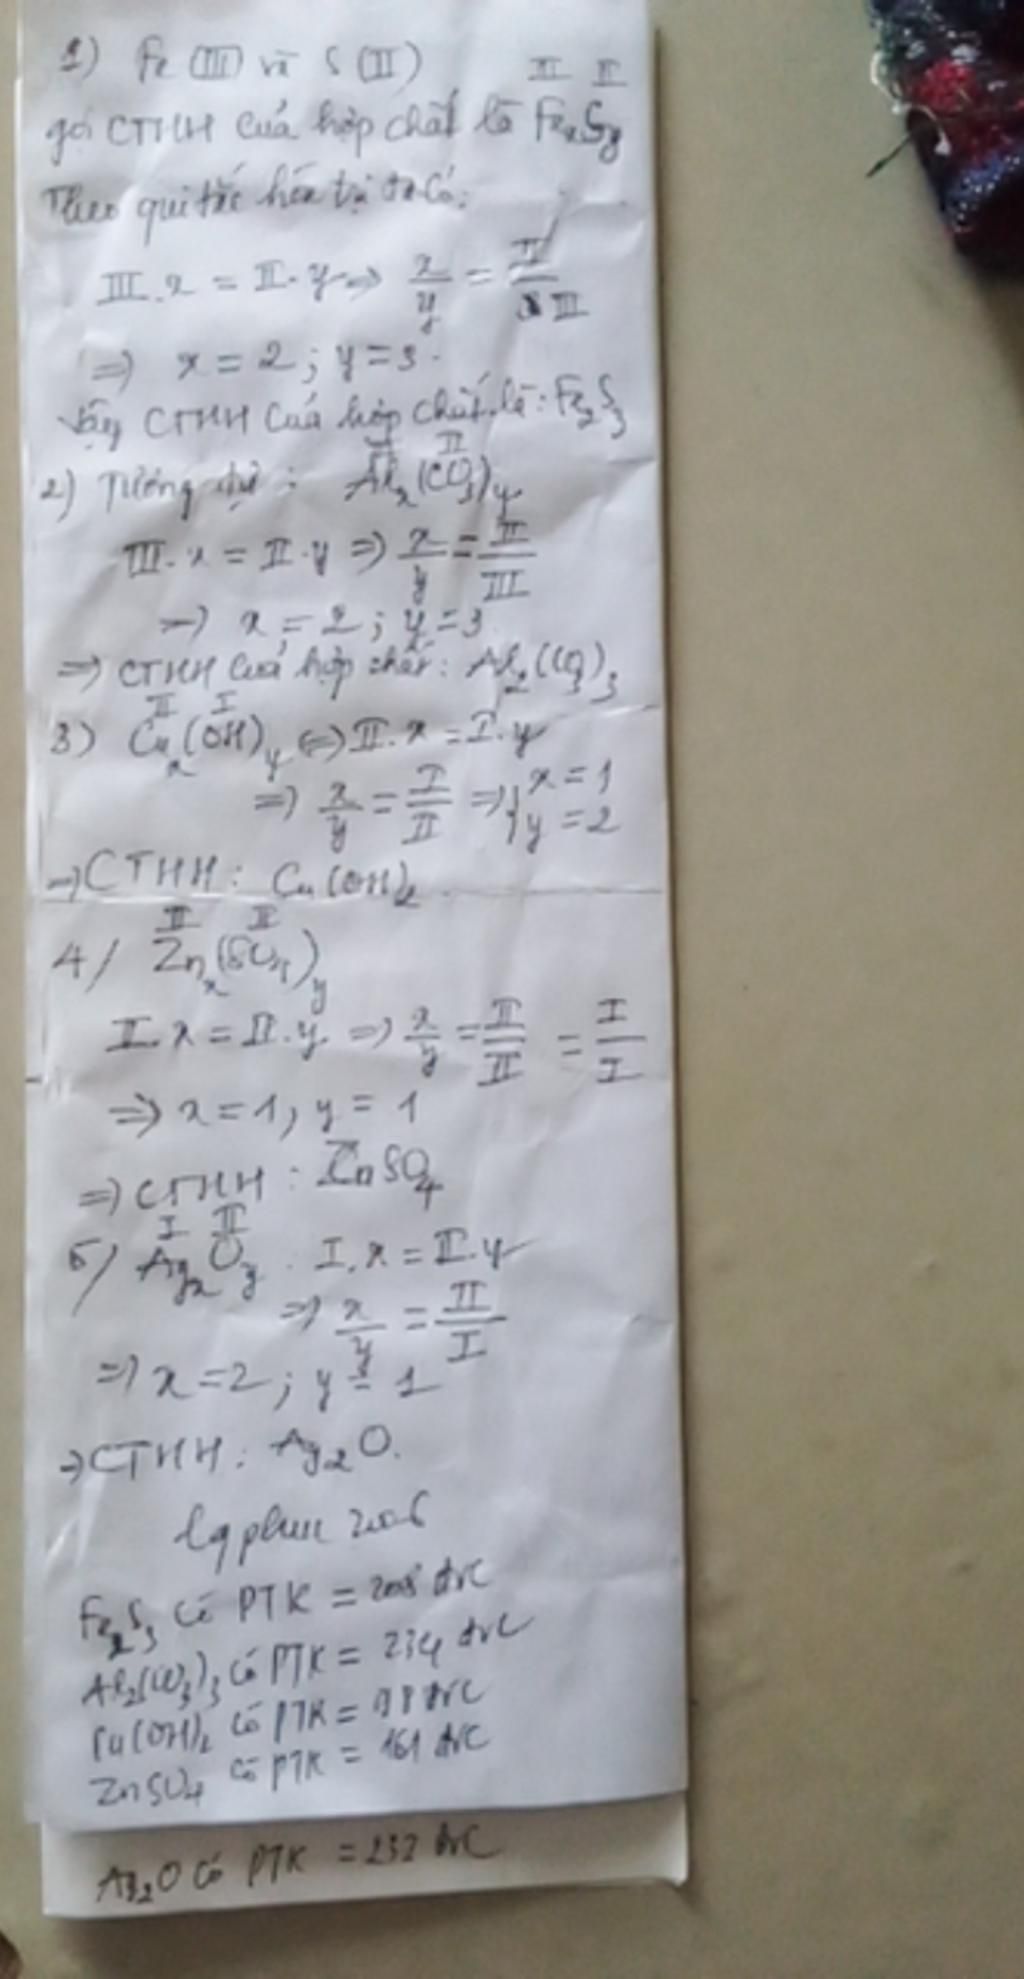 1) Fe (III) và S (II)
III II
gọi CTHH của hợp chất là FexSy
Theo qui tắc hóa trị ta có:
III.x = II.y => x/y = II/III
=> x = 2; y = 3.
Vậy CTHH của hợp chất là: Fe2S3
II
2) Tương tự: Alx(CO3)y
III.x = II.y => x/y = II/III
=> x = 2; y = 3
=> CTHH của hợp chất: Al2(CO3)3
II I
3) Cux(OH)y <=> II.x = I.y
=> x/y = I/II => { x = 1
y = 2
=> CTHH: Cu(OH)2.
II II
4/ Znx(SO4)y
II.x = II.y => x/y = II/II = I/I
=> x = 1, y = 1
=> CTHH: ZnSO4
I II
5/ AgxOy. I.x = II.y
=> x/y = II/I
=> x = 2; y = 1
=> CTHH: Ag2O.
Fe2S3 có PTK = 208 đvC
Al2(CO3)3 có PTK = 234 đvC
Cu(OH)2 có PTK = 98 đvC
ZnSO4 có PTK = 161 đvC
Ag2O có PTK = 232 đvC